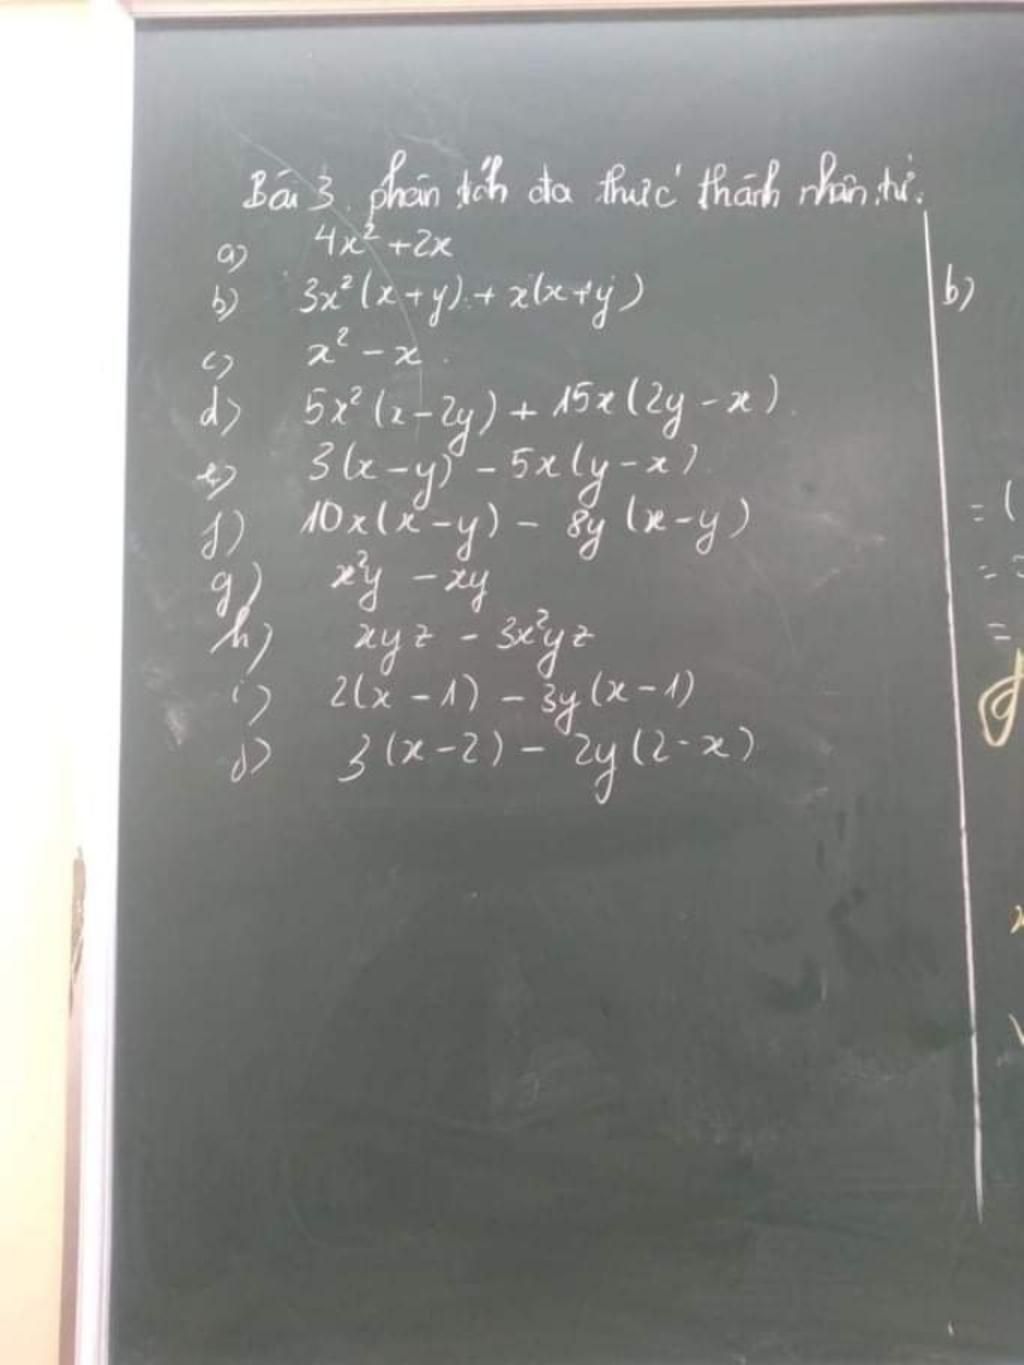 Bài 3. phân tích đa thức thành nhân tử.
a) 4x² + 2x
b) 3x²(x + y) + x(x + y)
c) x² - x
d) 5x²(x - 2y) + 15x(2y - x)
e) 3(x - y) - 5x(y - x)
f) 10x(x - y) - 8y(x - y)
g) x²y - xy
h) xyz - 3x²yz
i) 2(x - 1) - 3y(x - 1)
j) 3(x - 2) - 2y(2 - x)
b)
= (
=
=